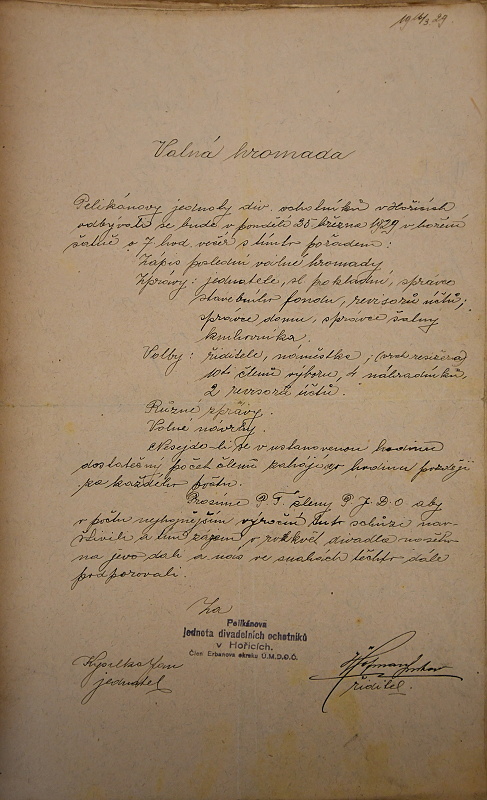 19 14/3 29.
Valná hromada
Pelikánovy jednoty div. ochotníků v Hořicích
odbývati se bude v pondělí 25 března 1929 v
šatně o 7 hod. večer s tímto pořadem:
Zápis poslední valné hromady
Zprávy: jednatele, pokladní, správce
stavebního fondu, revisorů účtů,
správce domu, správce šatny
knihovníka.
Volby: ředitele, náměstka,
10ti členů výboru, 4 náhradníků,
2 revisorů účtů.
Různé zprávy.
Volné návrhy.
Nesejde-li se v ustanovenou hodinu
dostatečný počet členů zahájí se o hodinu později
za každého počtu.
Prosíme P. T. členy P. J. D. O. aby
v počtu nejhojnějším výroční tuto schůzi nav-
štívili a tím zájem o rozkvět divadla našeho
na jevo dali a nás ve snahách těchto dále
podporovali.
Za
Pelikánova
Jednota divadelních ochotníků
v Hořicích.
Člen Erbanova okrsku Ú.M.D.O.Č.
jednatel
ředitel.